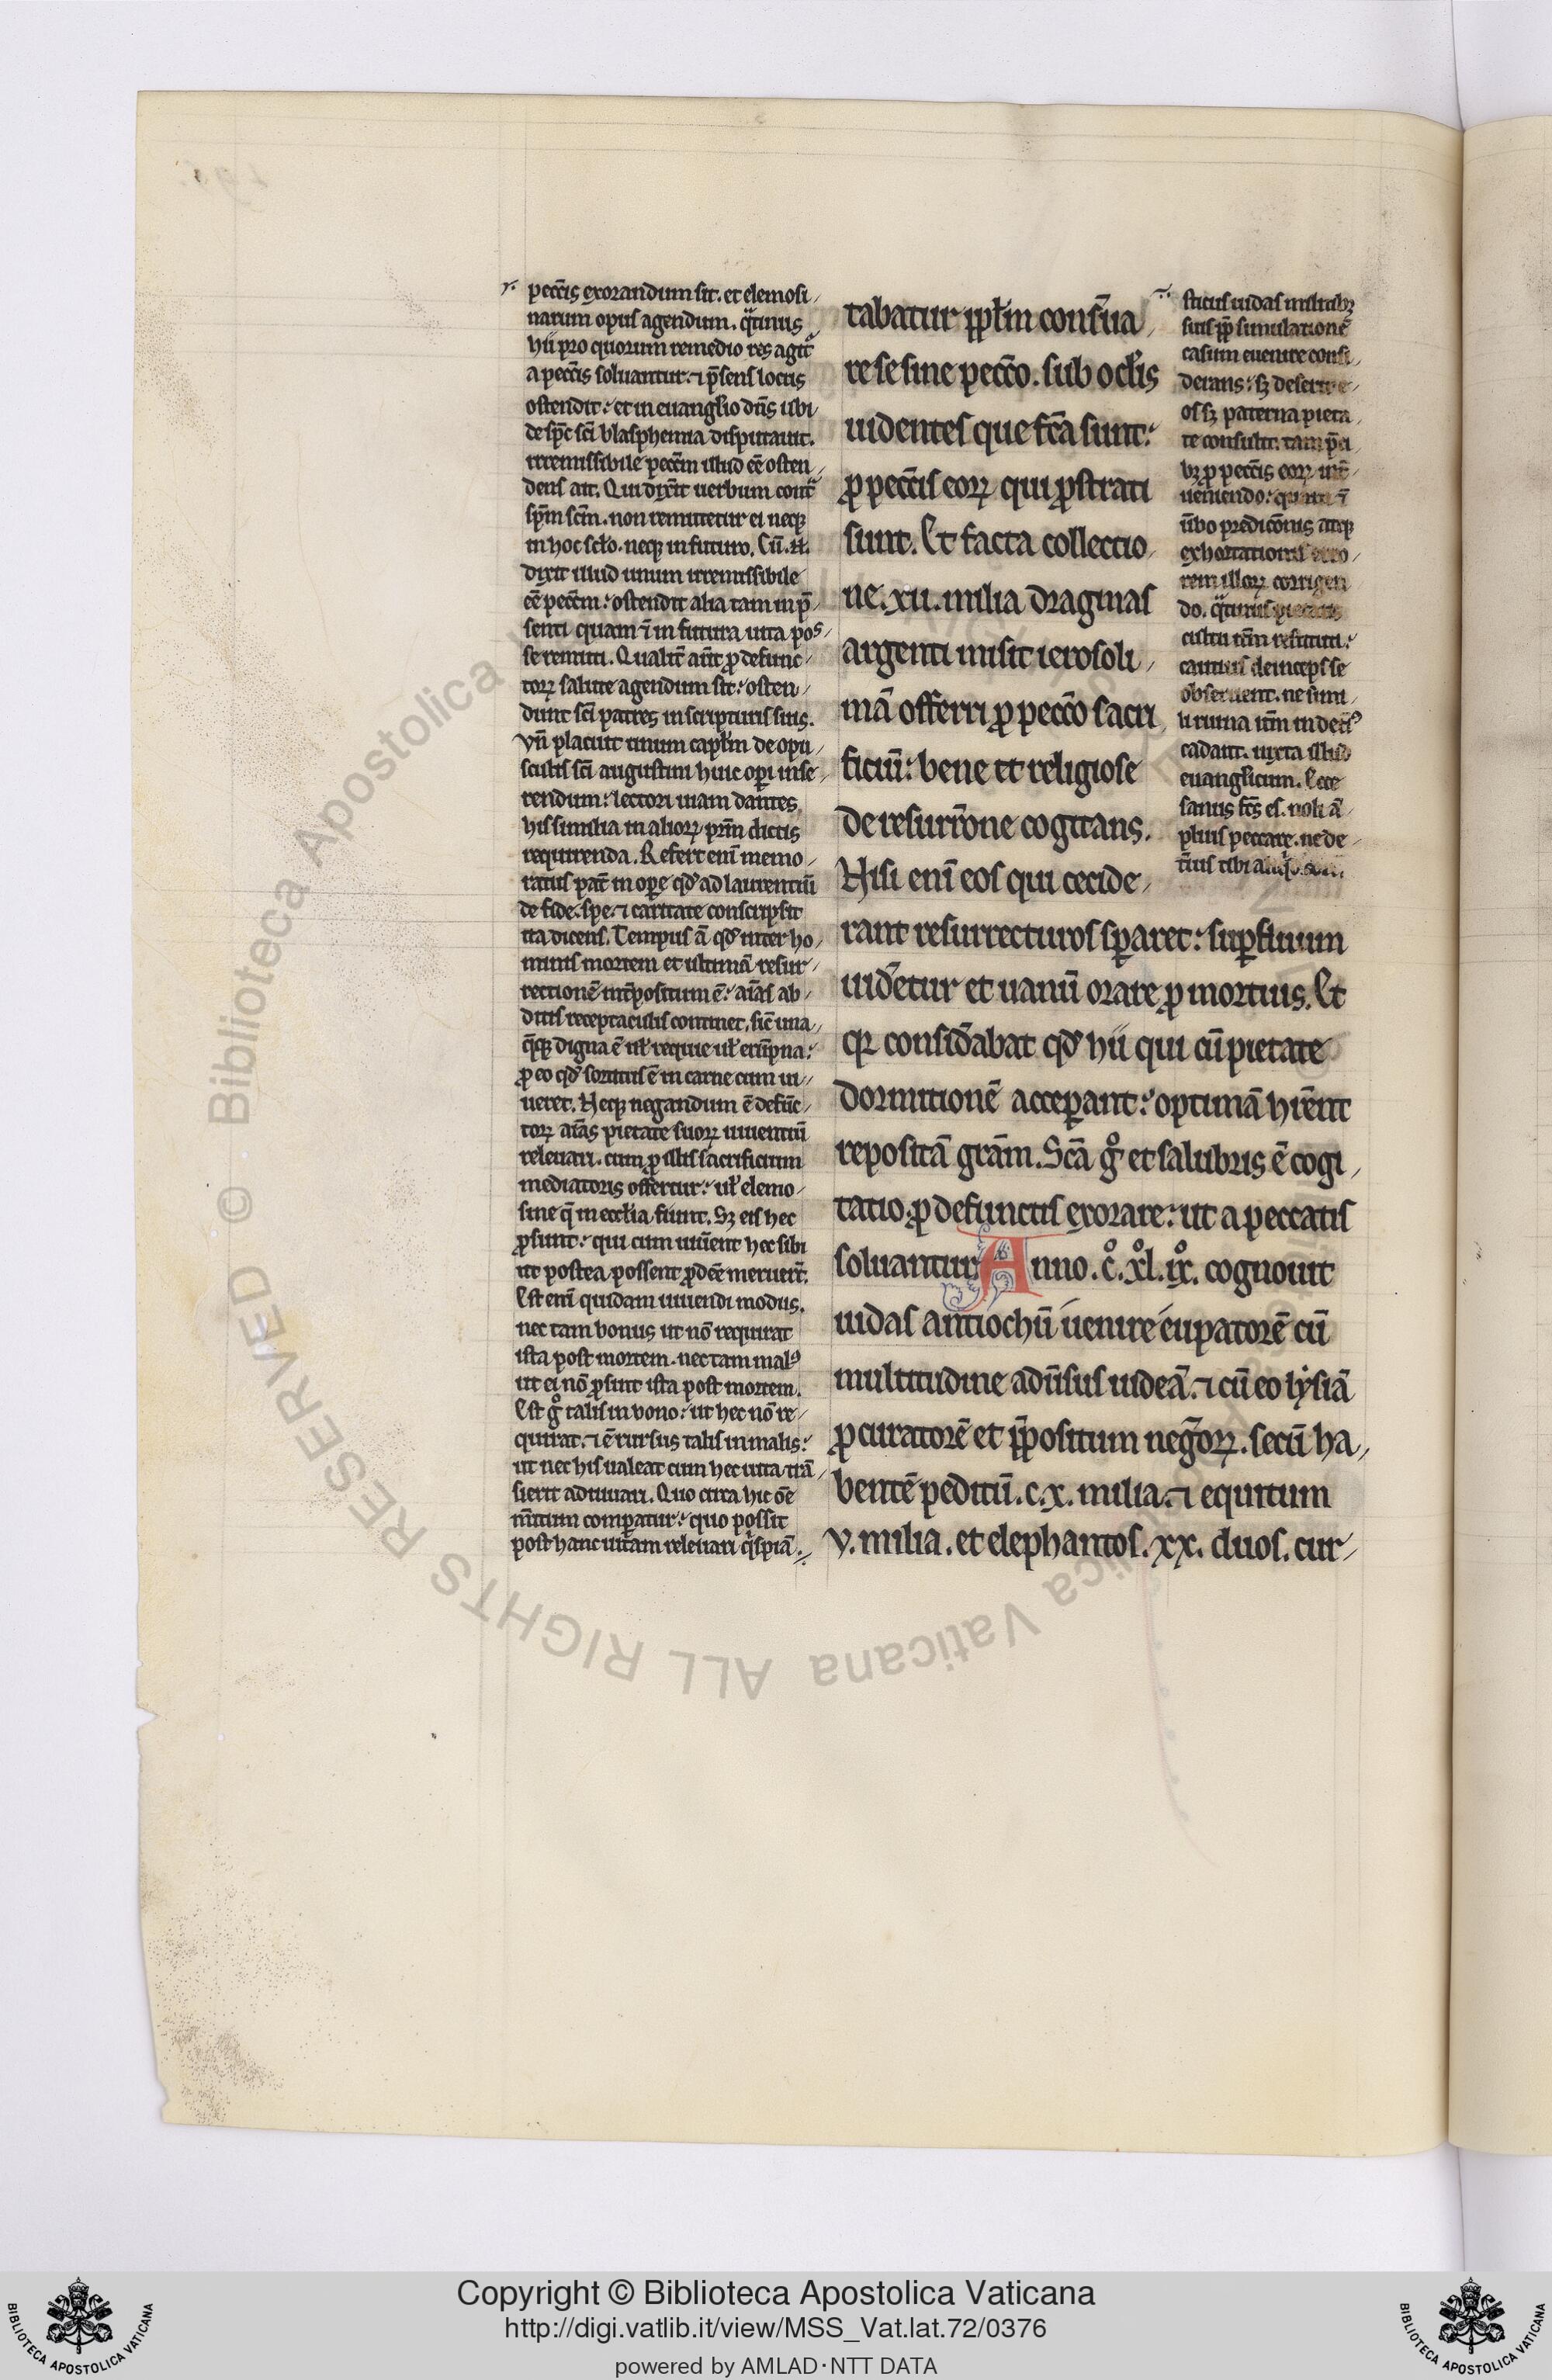 pecc̄is exorandum sit. et elemosi
narum opus agendum. q̄tinus
hii pro quorum remedio res agit᷑
a pecc̄is soluantur. ⁊ p̄sens locus
ostendit. et in euangl̄io dn̄s ubi
de sp̄c sc̄i blasphemia disputauit.
irremissibile pecc̄m illud ēē osten
dens ait. Qui dix̄it uerbum cont᷑
sp̄m sc̄m. non remittetur ei neq;
in hoc scl̄o. neq; in futuro. Cū .n.
dixit illud unum irremissibile
ēē pecc̄m. ostendit alia tam in p̄
senti quam ī in futura uita pos
se remitti. Qualit̄ aūt ꝓ defunc
toꝝ salute agendum sit. osten
dunt sc̄i patres in scripturis suis.
Vn̄ placuit unum capl̄m de opu
sculis sc̄i augustini huic op̄i inse
rendum. lectori uiam dantes
his similia in alioꝝ pr̄m dictis
requirenda. Refert enī memo
ratus pat̄ in oꝑe qd̄ ad laurentiū
de fide. spe. ⁊ caritate conscripsit
ita dicens. Tempus ā qd̄ inter ho
minis mortem et ultimā resur
rectionē int̄positum ē. aīas ab
ditis receptaculis continet. sic̄ una
q̄q; digna ē ul̄ requie ul̄ erūpna.
ꝓ eo qd̄ sortitus ē in carne cum ui
ueret. Neq; negandum ē defūc
toꝝ aīas pietate suoꝝ uiuentiū
releuari. cum ꝓ illis sacrificium
mediatoris offertur. ul̄ elemo
sine q̄ in eccl̄ia fiunt. Sꝫ eis hec
ꝓsunt. qui cum uiūent hec sibi
ut postea possent ꝓdēē meruer̄t.
Est enī quidam uiuendi modus.
nec tam bonus ut nō requirat
ista post mortem. nec tam malꝰ
ut ei nō ꝓsint ista post mortem.
Est gͦ talis in bono. ut hec nō re
quirat. ⁊ ē rursus talis in malis.
ut nec his ualeat cum hec uita trā
sierit adiuuari. Quo circa hic ōē
m̄itum comꝑatur. quo possit
post hanc uitam releuari q̄spiā.
tabatur pp̄l̄m conſ̄ua
re se sine pecc̄o. sub ocl̄is
uidentes que fc̄a sunt.
ꝓ pecc̄is eoꝝ qui ꝓstrati
sunt. Et facta collectio
ne .xii. milia dragmas
argenti misit ierosoli
mā offerri ꝓ pecc̄o sacri
ficiū. bene et religiose
de resurr̄one cogitans.
Nisi enī eos qui cecide
rant resurrecturos sꝑaret. suꝑfluum
uid̄etur et uanū orare ꝓ mortuis. Et
qꝛ consid̄abat qd̄ hii qui cū pietate
dormitionē acceꝑant. optimā hr̄ent
repositā grām. Sc̄a gͦ et salubris ē cogi
tatio ꝓ defunctis exorare. ut a peccatis
soluantur Anno .cͦ. xͦl. ixͦ. cognouit
iudas antiochū uenire eupatorē cū
multitudine adūsus iudeā. ⁊ cū eo lysiā
ꝓcuratorē et p̄positum neg̃oꝝ. secū ha
bentē peditū .c.x. milia. ⁊ equitum
v. milia. et elephantos .xx. duos. cur
sticus iudas militibꝫ
suis pp̄ simulationē
casum euenire consi
derans. sꝫ
os sꝫ paterna pieta
te consulit.
bꝫ ꝓ pecc̄is eoꝝ
ueniendo.
ūbo predicōnis atq;
exhortationis
rem illoꝝ corrigen
do. q̄tinus
cultu it̄m restituti.
cautius deinceps se
obseruent. ne simi
li ruina it̄m in det̄iꝰ
cadant. iuxta illud
euangl̄icum. Ecce
sanus fc̄s es. noli ā
plius peccare. ne de
t̄ius tibi
Copyright © Biblioteca Apostolica Vaticana
http://digi.vatlib.it/view/MSS_Vat.lat.72/0376
powered by AMLAD·NTT DATA
BIBLIOTECA APOSTOLICA VATICANA
BIBLIOTECA APOSTOLICA VATICANA
© Biblioteca Apostolica Vaticana ALL RIGHTS RESERVED